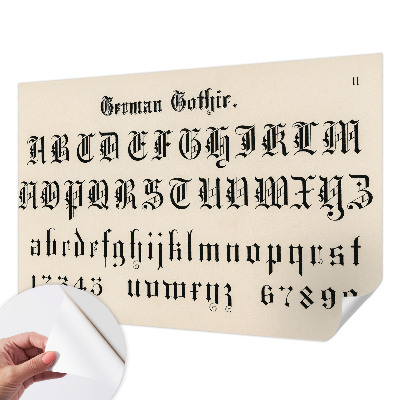 11
German Gothic.
ABCDEFGHIJKLM
NOPQRSTUVWXYZ
abcdefghijklmnopqrst
12345 uvwxyz 67890